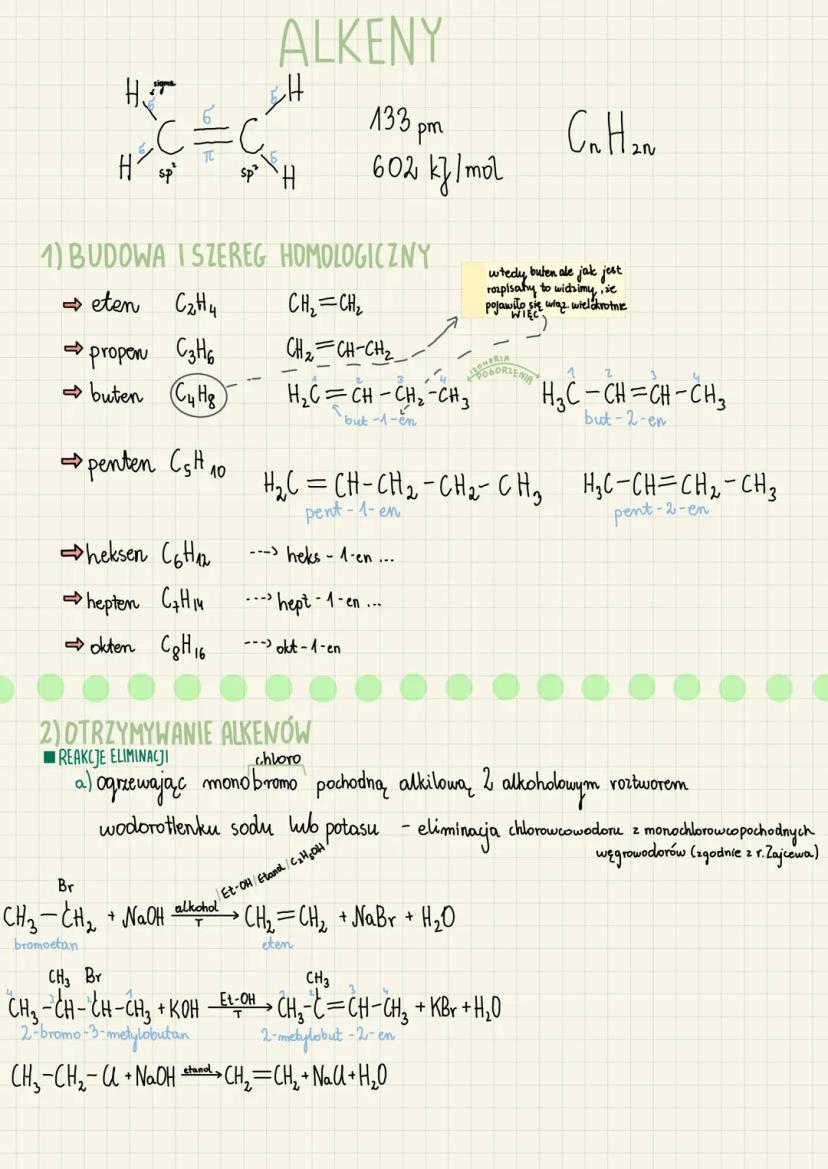 ALKENY
H sigma H
σ σ
C σ = π C
133 pm
CnH2n
H σ sp² sp² σ H
602 kJ/mol
1) BUDOWA I SZEREG HOMOLOGICZNY
wtedy buten ale jak jest
rozpisany to widzimy, że
pojawiło się wiąz. wielokrotne
WIĘC
⇒ eten C₂H₄ CH₂=CH₂
⇒ propen C₃H₆ CH₂=CH-CH₂
IZOMERIA
POŁOŻENIA
1 2 3 4 1 2 3 4
⇒ buten C₄H₈ H₂C=CH-CH₂-CH₃ H₃C-CH=CH-CH₃
but-1-en but-2-en
⇒ penten C₅H₁₀
H₂C=CH-CH₂-CH₂-CH₃ H₃C-CH=CH₂-CH₃
pent-1-en pent-2-en
⇒ heksen C₆H₁₂ ---> heks-1-en ...
⇒ hepten C₇H₁₄ ---> hept-1-en ...
⇒ okten C₈H₁₆ ---> okt-1-en
2) OTRZYMYWANIE ALKENÓW
■ REAKCJE ELIMINACJI
chloro
a) ogrzewając monobromo pochodną alkilową z alkoholowym roztworem
wodorotlenku sodu lub potasu - eliminacja chlorowcowodoru z monochlorowcopochodnych
węgrowodorów (zgodnie z r. Zajcewa)
Et-OH/Etanol/C₂H₅OH
Br
CH₃-CH₂ + NaOH alkohol T → CH₂=CH₂ + NaBr + H₂O
bromoetan eten
CH₃ Br CH₃
4 3 2 1 1 2 3 4
CH₃-CH-CH-CH₃ + KOH Et-OH T → CH₃-C=CH-CH₃ + KBr + H₂O
2-bromo-3-metylobutan 2-metylobut-2-en
CH₃-CH₂-Cl + NaOH etanol → CH₂=CH₂ + NaCl + H₂O